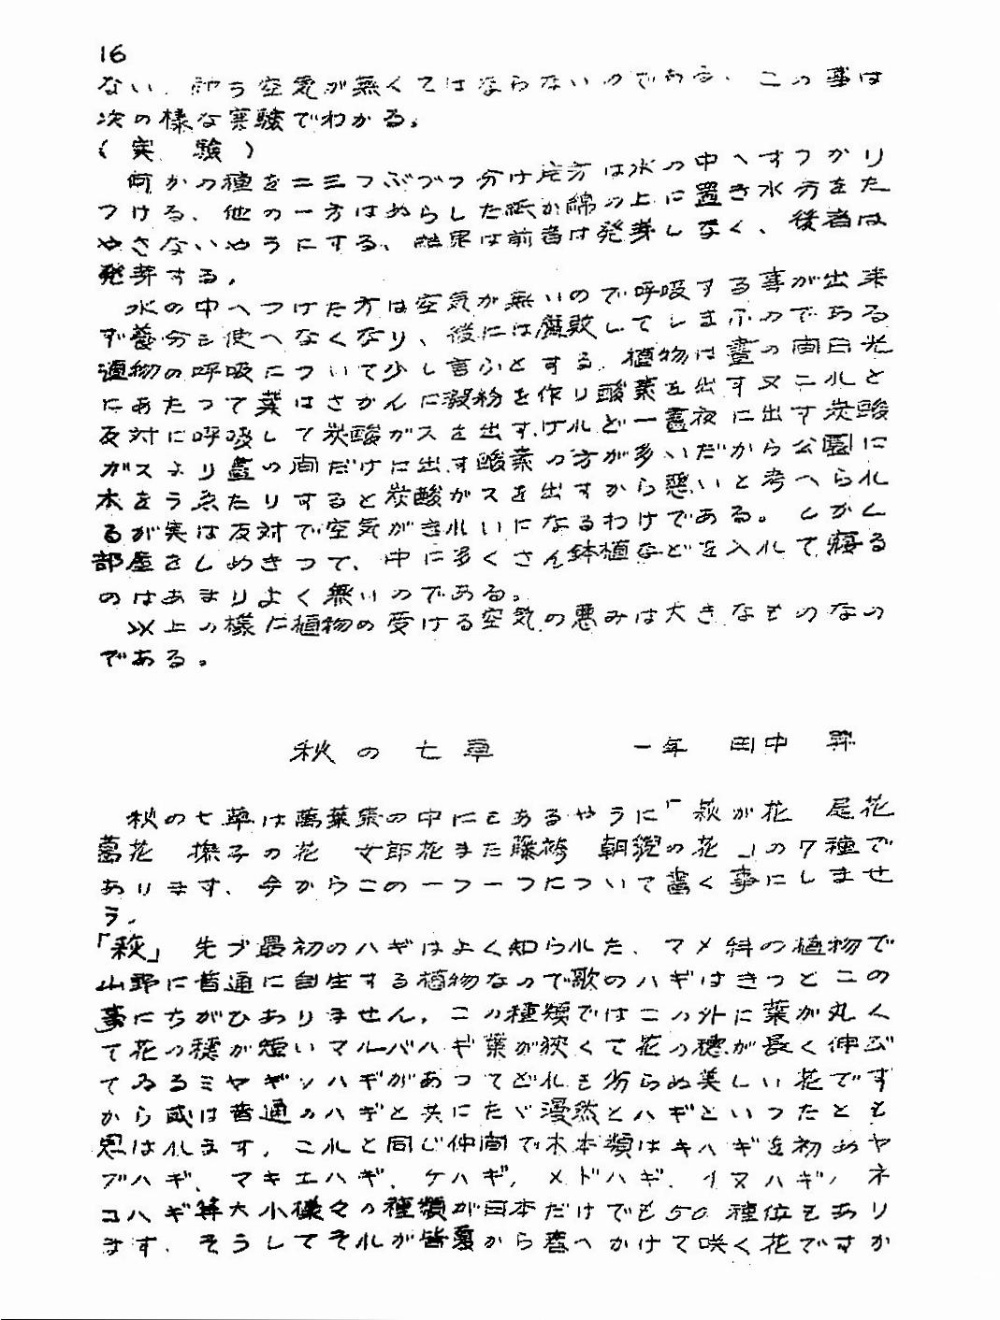 16
ない、即ち空気が無くてはならないのである。この事は
次の様な実験でわかる。
(実 験)
何かの種を二三つぶづつ分け片方は水の中へすつかり
つける、他の一方はぬらした紙か綿の上に置き水方をた
やさないやうにする、結果は前者は発芽しなく、後者は
発芽する。
水の中へつけた方は空気が無いので呼吸する事が出来
ず養分を使へなくなり、後には腐敗してしまふのである
植物の呼吸について少し言ふとする。植物は晝の間日光
にあたつて葉はさかんに澱粉を作り酸素を出す又これと
反対に呼吸して炭酸ガスを出す,けれど一晝夜に出す炭酸
ガスより晝の間だけに出す酸素の方が多いだから公園に
木をうゑたりすると炭酸ガスを出すから悪いと考へられ
るが実は反対で空気がきれいになるわけである。しかし
部屋をしめきつて、中に多くさん鉢植などを入れて寝る
のはあまりよく無いのである。
以上の様に植物の受ける空気の悪みは大きなものなの
である。
秋の七草 一年 田中 昇
秋の七草は萬葉集の中にもあるやうに「萩が花 尾花
葛花 撫子の花 女郎花また藤袴 朝貌の花」の7種で
あります、今からこの一つ一つについて書く事にしませ
う。
「萩」 先づ最初のハギはよく知られた、マメ科の植物で
山野に普通に自生する植物なので歌のハギはきつとこの
事にちがひありません。この種類ではこの外に葉が丸く
て花の穂が短いマルバハギ葉が狭くて花の穂が長く伸び
てゐるミヤギノハギがあつてどれも劣らぬ美しい花です
から或は普通のハギと共にたゞ漫然とハギといつたとも
思はれます。これと同じ仲間で木本類はキハギを初めヤ
ブハギ、マキエハギ、ケハギ, メドハギ、イヌハギ, ネ
コハギ等大小様々の種類が日本だけでも50種位もあり
ます、そうしてそれが皆夏から春へかけて咲く花ですか